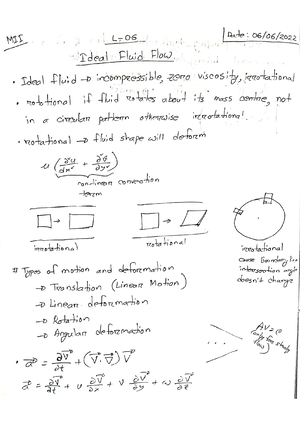 MII
L-06
Date: 06/06/2022
Ideal Fluid Flow
• Ideal fluid → incompressible, zero viscosity, irrotational
• rotational if fluid rotates about its mass centre, not
in a circular pattern otherwise irrotational.
• rotational → fluid shape will deform
non-linear convection
term
irrotational
rotational
irrotational
cause boundary line
intersection angle
doesn't change
# Types of motion and deformation
→ Translation (Linear Motion)
→ Linear deformation
→ Rotation
→ Angular deformation
• a⃗ = ∂V⃗/∂t + (V⃗.∇⃗) V⃗
a⃗ = ∂V⃗/∂t + u ∂V⃗/∂x + v ∂V⃗/∂y + w ∂V⃗/∂z